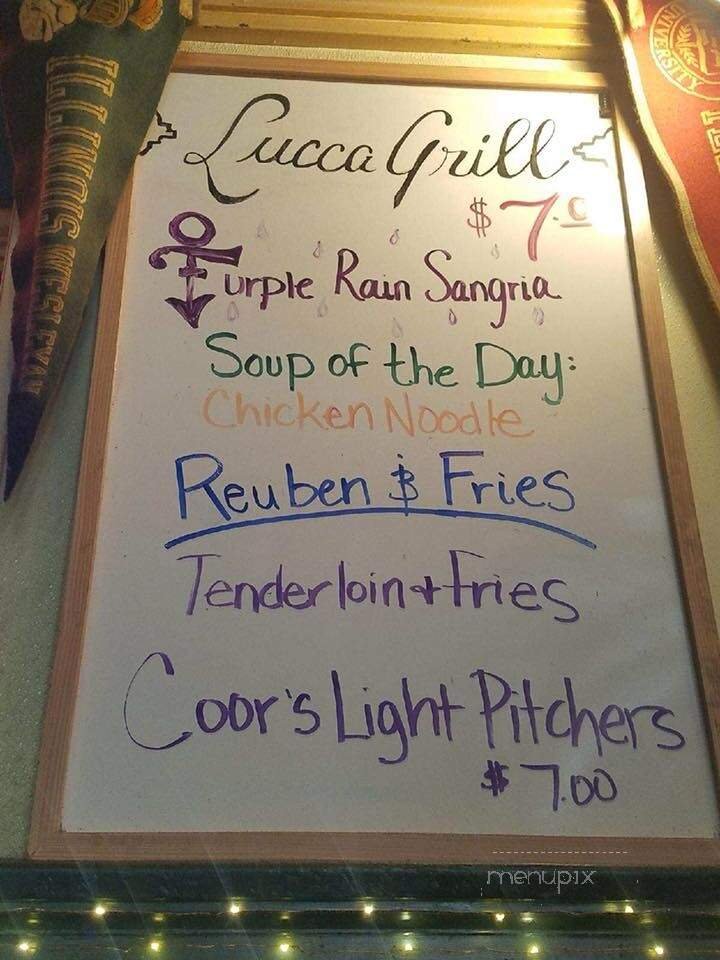 ILLINOIS WESLEYAN
UNIVERSITY
Lucca Grill
$7.
Purple Rain Sangria
Soup of the Day:
Chicken Noodle
Reuben & Fries
Tenderloin + Fries
Coor's Light Pitchers
$7.00
menupix